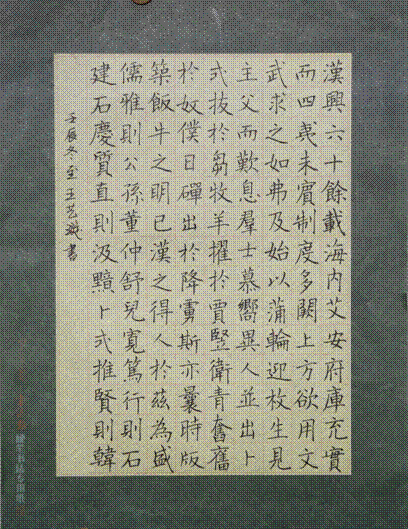 漢興六十餘載海內艾安府庫充實
而四夷未賓制度多闕上方欲用文
武求之如弗及始以蒲輪迎枚生見
主父而歎息羣士慕嚮異人並出卜
式拔於芻牧羊擢於賈豎衛青奮
於奴僕日磾出於降虜斯亦曩時版
築飯牛之明已漢之得人於茲為盛
儒雅則公孫董仲舒兒寬篤行則石
建石慶質直則汲黯卜式推賢則韓
壬辰冬至王艺書